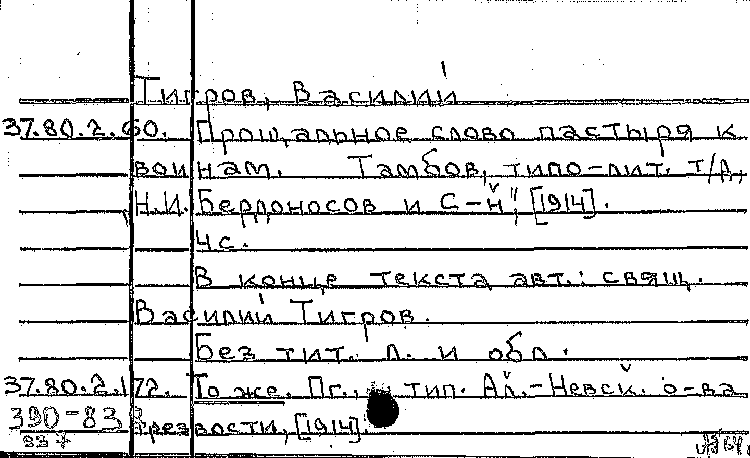 Тигров, Василий
37.80.2.60. Прощальное слово пастыря к
воинам. Тамбов, типо-лит. т/д,
Н.И. Бердоносов и С-й", [1914].
4 с.
В конце текста авт.: свящ.
Василий Тигров.
Без тит. л. и обл.
37.80.2.172. То же. Пг., тип. Ал.-Невск. о-ва
390-83 трезвости, [1914].
337